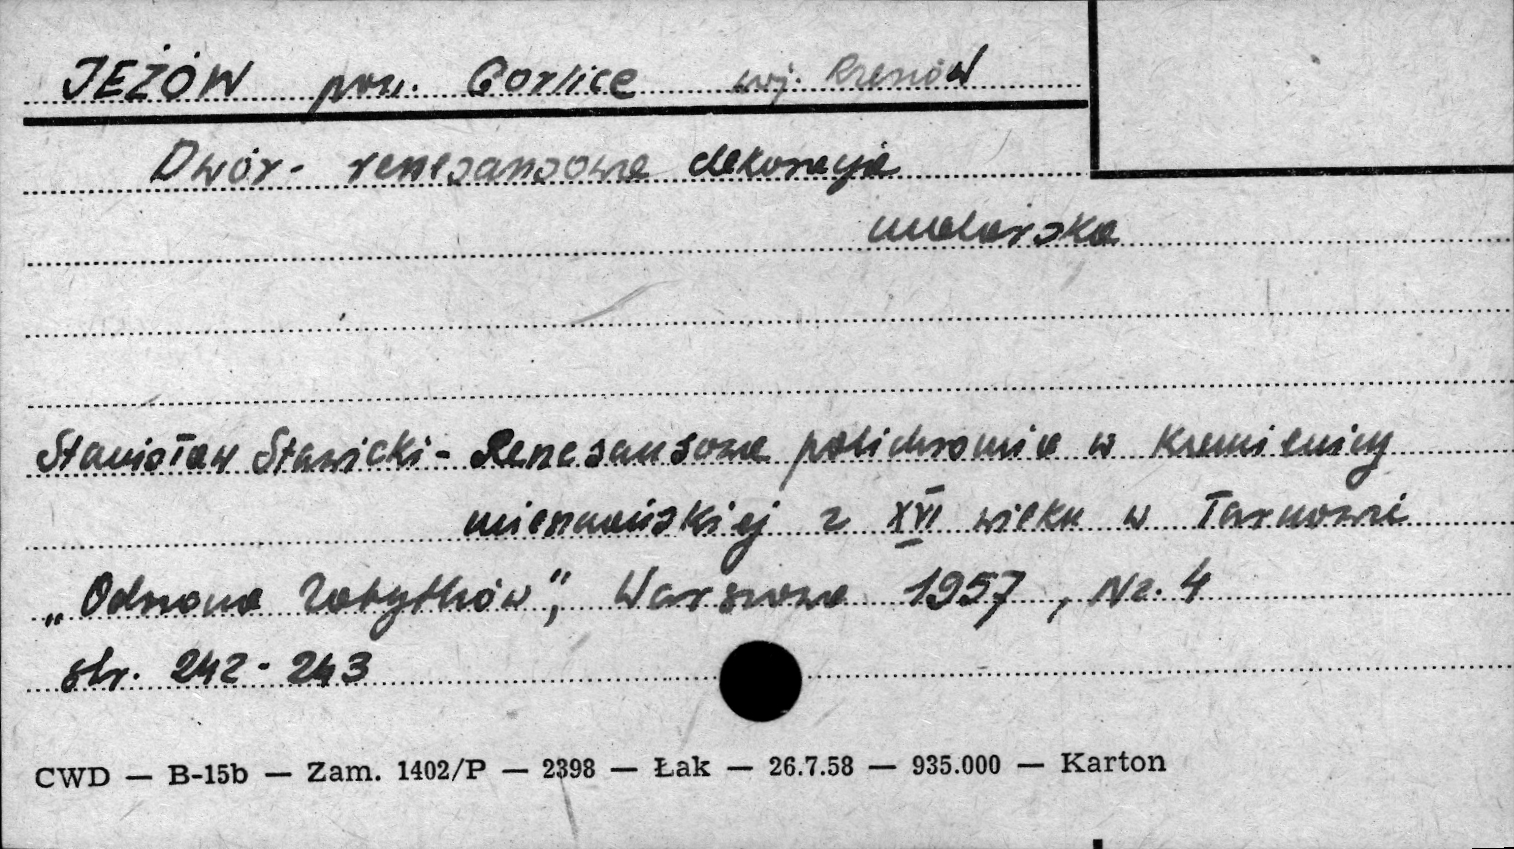 JEŻÓW pow. Gorlice woj. Rzeszów
Dwór - renesansowa dekoracja
malarska
Stanisław Stawicki - Renesansowa polichromia w kamienicy
mieszczańskiej z XVI wieku w Tarnowie
„Ochrona Zabytków", Warszawa 1957, Nr. 4
str. 242 - 243
CWD — B-15b — Zam. 1402/P — 2398 — Łak — 26.7.58 — 935.000 — Karton